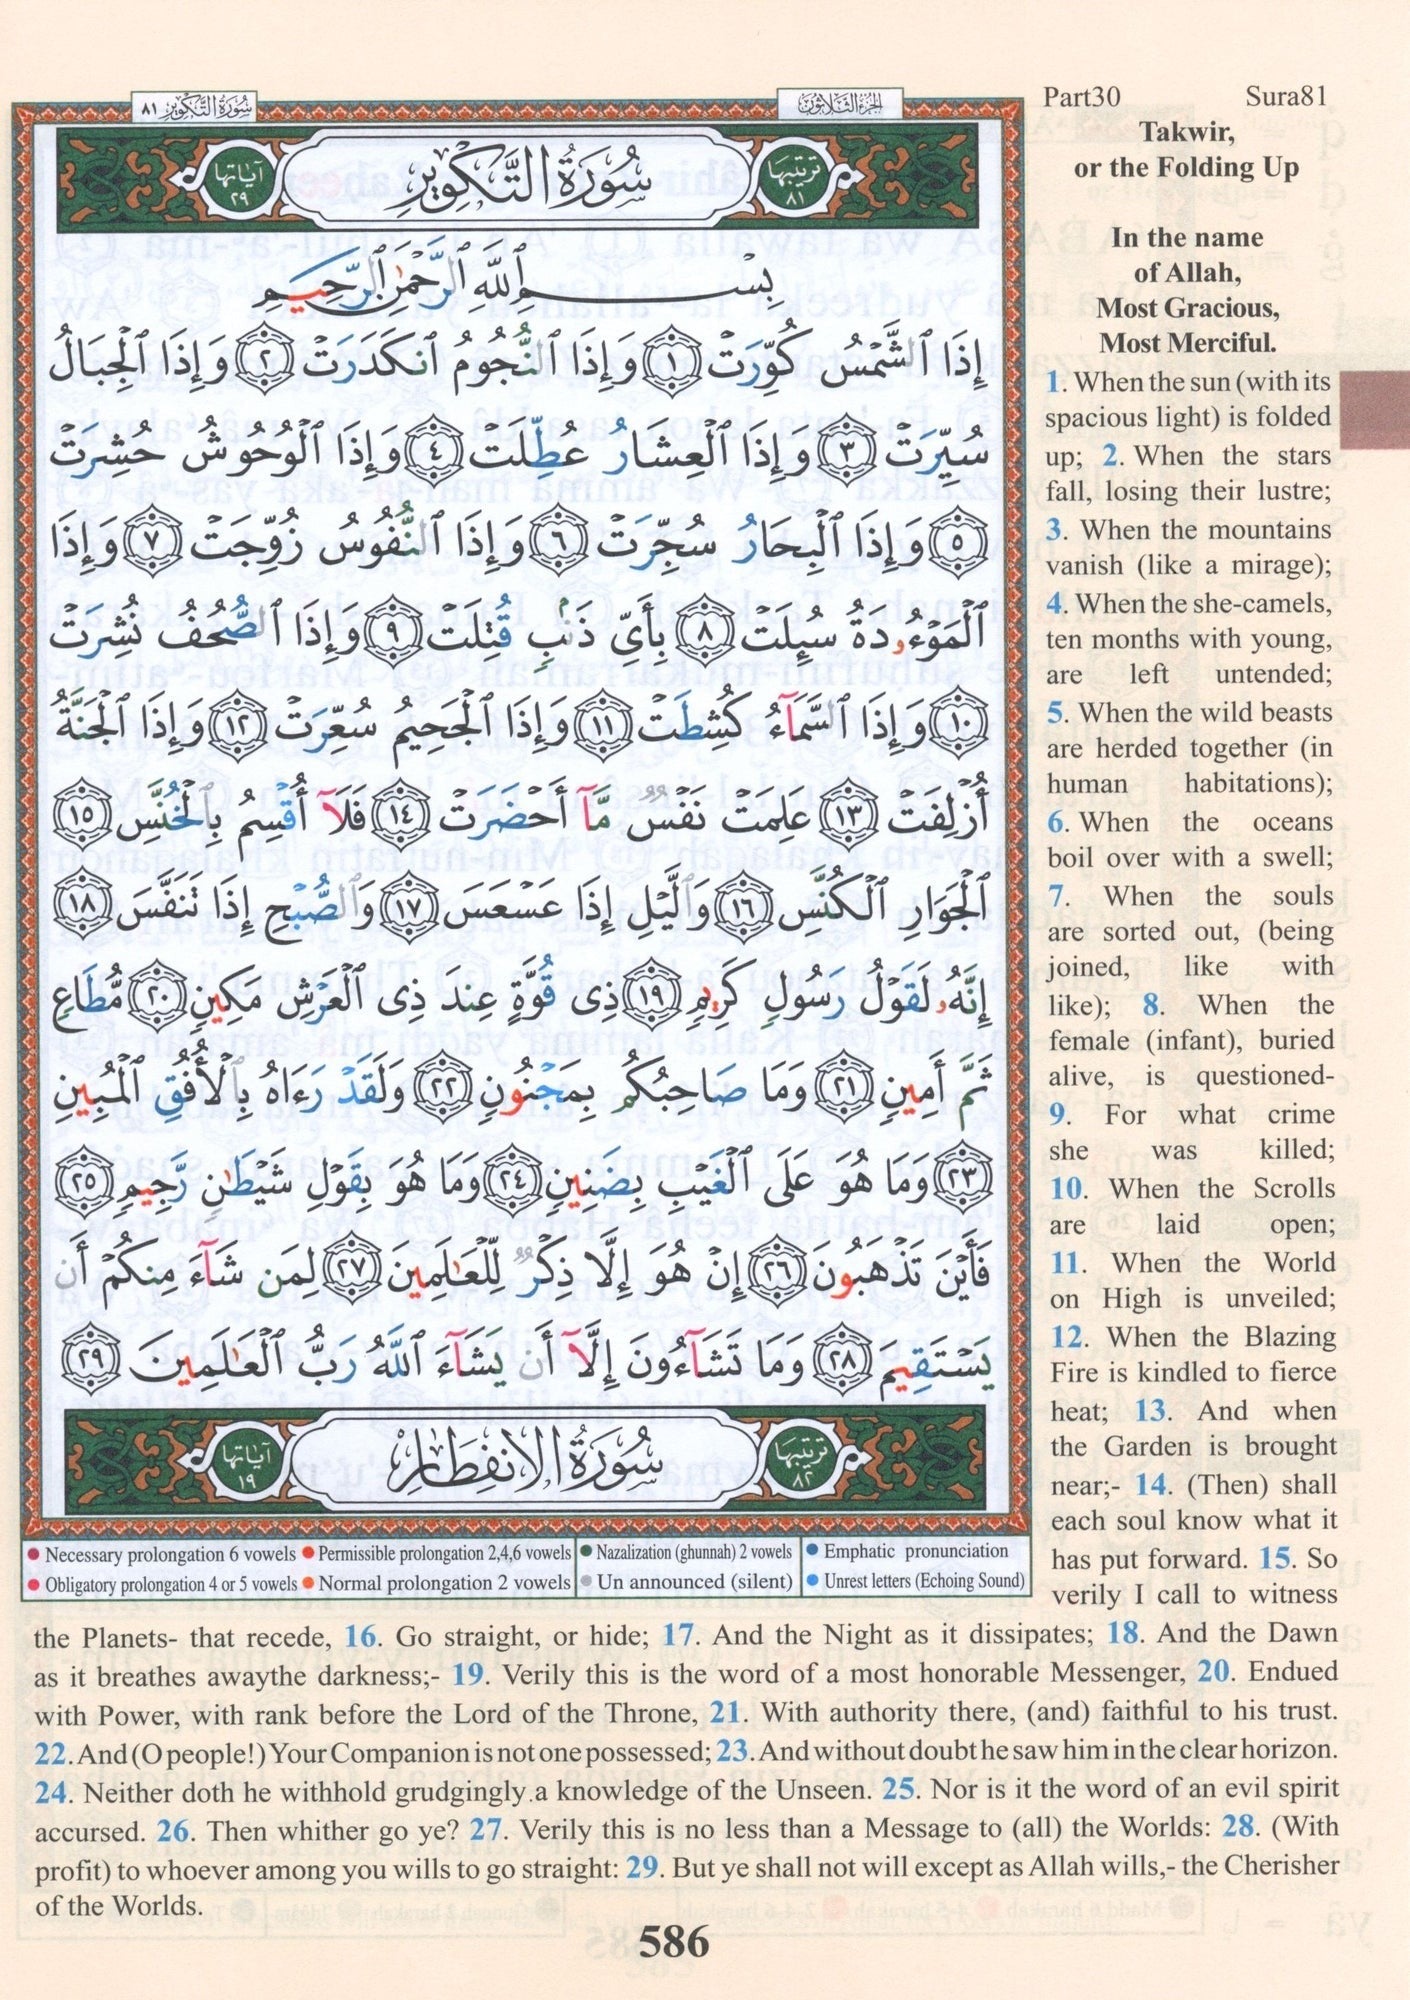 سُورَةُ التَّكْوِيرِ ٨١
الجزء الثلاثون
Part30 Sura81
آياتها ٢٩
سُورَةُ التَّكْوِيرِ
ترتيبها ٨١
بِسْمِ ٱللَّهِ ٱلرَّحْمَٰنِ ٱلرَّحِيمِ
إِذَا ٱلشَّمْسُ كُوِّرَتْ ١ وَإِذَا ٱلنُّجُومُ ٱنكَدَرَتْ ٢ وَإِذَا ٱلْجِبَالُ
سُيِّرَتْ ٣ وَإِذَا ٱلْعِشَارُ عُطِّلَتْ ٤ وَإِذَا ٱلْوُحُوشُ حُشِرَتْ
٥ وَإِذَا ٱلْبِحَارُ سُجِّرَتْ ٦ وَإِذَا ٱلنُّفُوسُ زُوِّجَتْ ٧ وَإِذَا
ٱلْمَوْءُۥدَةُ سُئِلَتْ ٨ بِأَىِّ ذَنۢبٍ قُتِلَتْ ٩ وَإِذَا ٱلصُّحُفُ نُشِرَتْ
١٠ وَإِذَا ٱلسَّمَآءُ كُشِطَتْ ١١ وَإِذَا ٱلْجَحِيمُ سُعِّرَتْ ١٢ وَإِذَا ٱلْجَنَّةُ
أُزْلِفَتْ ١٣ عَلِمَتْ نَفْسٌ مَّآ أَحْضَرَتْ ١٤ فَلَآ أُقْسِمُ بِٱلْخُنَّسِ ١٥
ٱلْجَوَارِ ٱلْكُنَّسِ ١٦ وَٱلَّيْلِ إِذَا عَسْعَسَ ١٧ وَٱلصُّبْحِ إِذَا تَنَفَّسَ ١٨
إِنَّهُۥ لَقَوْلُ رَسُولٍ كَرِيمٍ ١٩ ذِى قُوَّةٍ عِندَ ذِى ٱلْعَرْشِ مَكِينٍ ٢٠ مُّطَاعٍ
ثَمَّ أَمِينٍ ٢١ وَمَا صَاحِبُكُم بِمَجْنُونٍ ٢٢ وَلَقَدْ رَءَاهُ بِٱلْأُفُقِ ٱلْمُبِينِ
٢٣ وَمَا هُوَ عَلَى ٱلْغَيْبِ بِضَنِينٍ ٢٤ وَمَا هُوَ بِقَوْلِ شَيْطَٰنٍ رَّجِيمٍ ٢٥
فَأَيْنَ تَذْهَبُونَ ٢٦ إِنْ هُوَ إِلَّا ذِكْرٌ لِّلْعَٰلَمِينَ ٢٧ لِمَن شَآءَ مِنكُمْ أَن
يَسْتَقِيمَ ٢٨ وَمَا تَشَآءُونَ إِلَّآ أَن يَشَآءَ ٱللَّهُ رَبُّ ٱلْعَٰلَمِينَ ٢٩
آياتها ١٩
سُورَةُ الانفِطَارِ
ترتيبها ٨٢
Necessary prolongation 6 vowels Permissible prolongation 2,4,6 vowels Nazalization (ghunnah) 2 vowels Emphatic pronunciation
Obligatory prolongation 4 or 5 vowels Normal prolongation 2 vowels Un announced (silent) Unrest letters (Echoing Sound)
Takwir,
or the Folding Up
In the name
of Allah,
Most Gracious,
Most Merciful.
1. When the sun (with its
spacious light) is folded
up; 2. When the stars
fall, losing their lustre;
3. When the mountains
vanish (like a mirage);
4. When the she-camels,
ten months with young,
are left untended;
5. When the wild beasts
are herded together (in
human habitations);
6. When the oceans
boil over with a swell;
7. When the souls
are sorted out, (being
joined, like with
like); 8. When the
female (infant), buried
alive, is questioned-
9. For what crime
she was killed;
10. When the Scrolls
are laid open;
11. When the World
on High is unveiled;
12. When the Blazing
Fire is kindled to fierce
heat; 13. And when
the Garden is brought
near;- 14. (Then) shall
each soul know what it
has put forward. 15. So
verily I call to witness
the Planets- that recede, 16. Go straight, or hide; 17. And the Night as it dissipates; 18. And the Dawn
as it breathes awaythe darkness;- 19. Verily this is the word of a most honorable Messenger, 20. Endued
with Power, with rank before the Lord of the Throne, 21. With authority there, (and) faithful to his trust.
22. And (O people!) Your Companion is not one possessed; 23. And without doubt he saw him in the clear horizon.
24. Neither doth he withhold grudgingly a knowledge of the Unseen. 25. Nor is it the word of an evil spirit
accursed. 26. Then whither go ye? 27. Verily this is no less than a Message to (all) the Worlds: 28. (With
profit) to whoever among you wills to go straight: 29. But ye shall not will except as Allah wills,- the Cherisher
of the Worlds.
586